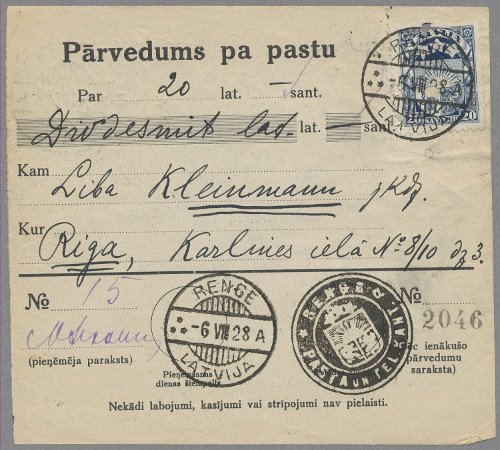 Pārvedums pa pastu
Par 20 lat. — sant.
Divdesmit lat. lat. — sant.
Kam
Liba Kleinmann jkdz.
Kur
Riga, Karlines ielā No 8/10 dz 3.
No 15
No
2046
(pieņēmēja paraksts)
Pieņemšanas
dienas štempelis
pēc ienākušo
pārvedumu
saraksta)
Nekādi labojumi, kasījumi vai strīpojumi nav pielaisti.
RENGE
-6 VIII 28 A
LATVIJA
RENGE
-6 VIII 28 A
LATVIJA
20 20
PASTA UN TEL